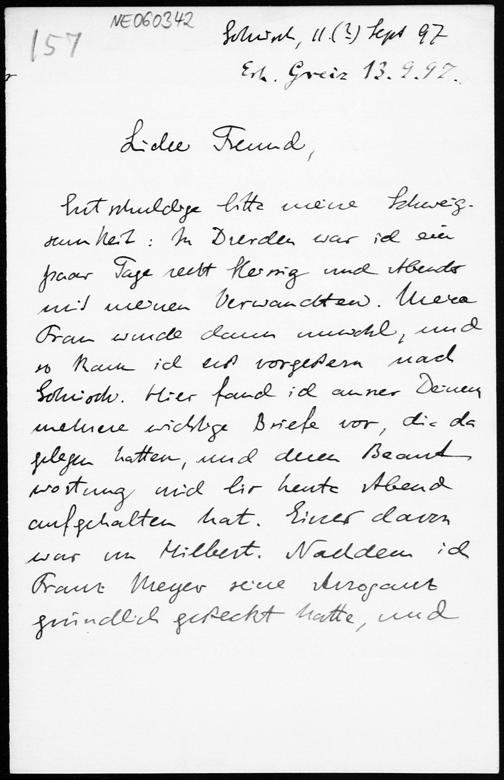 NE060342
157
Schirsch, 11.(?) Sept 97
Erh. Greiz 13.9.97.
Lieber Freund,
Entschuldige bitte meine Schweig-
samkeit: In Dresden war ich ein
paar Tage recht fleissig und Abends
mit meinen Verwandten. Meine
Frau wurde dann unwohl, und
so kam ich erst vorgestern nach
Hier fand ich ausser Deinem
mehrere wichtige Briefe vor, die da
gelegen hatten, und deren Beant
wortung mich bis heute Abend
aufgehalten hat. Einer davon
war von Hilbert. Nachdem ich
Franz Meyer seine Arroganz
gründlich gesteckt hatte, und